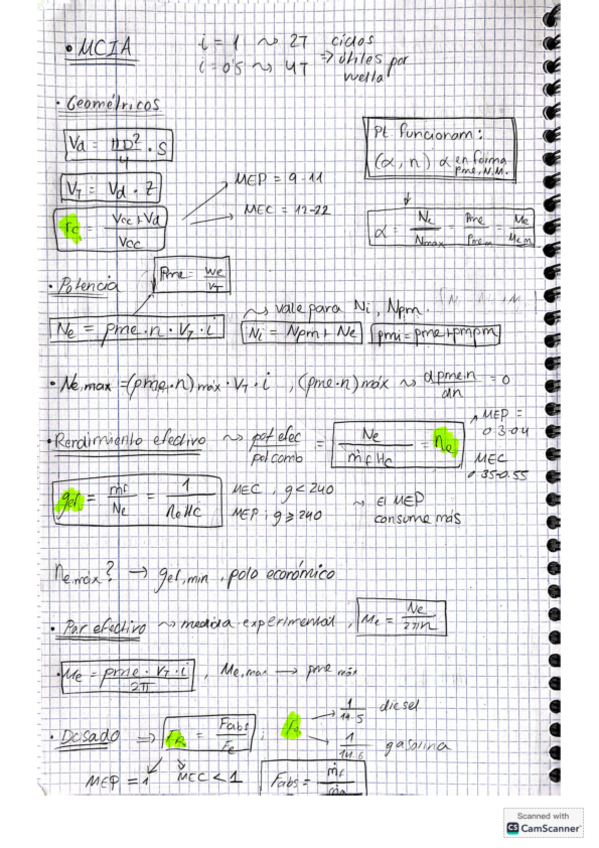 • MCIA
i = 1 ~> 2T ciclos
i = 0'5 ~> 4T => útiles por vuelta
• Geométricos
Vd = πD²/4 · S
Pt. funcionam:
(α, n) α en forma pme, N, M.
VT = Vd · Z
MEP = 9-11
rc = Vcc+Vd / Vcc
MEC = 12-22
α = Ne/Nmax = Pme/Pme,m = Me/Me,m
• Potencia
Pme = We/VT
~> vale para Ni, Npm.
Ne = pme·n·VT·i
Ni = Npm + Ne
pmi = pme+pmpm
• Ne,max = (pme·n)máx · VT · i , (pme·n)máx ~> dpme·n/dn = 0
• Rendimiento efectivo ~> pot elec/pot comb = Ne/ṁf Hc = ηe
MEP = 0'3-0'4
MEC 0'35-0'55
gef = ṁf/Ne = 1/ηe Hc
MEC , g < 240
MEP ; g ≥ 240
~> El MEP consume más
ηe,máx? → gef,min , polo económico
• Par efectivo ~> medida experimental , Me = Ne/2πn
• Me = pme · VT · i / 2π , Me,max → pme máx
• Dosado => FR = Fabs/Fe ; Fe
1/14'5 diesel
1/14'6 gasolina
MEP = 1 MEC < 1
Fabs = ṁf/ṁa
Scanned with
CS CamScanner